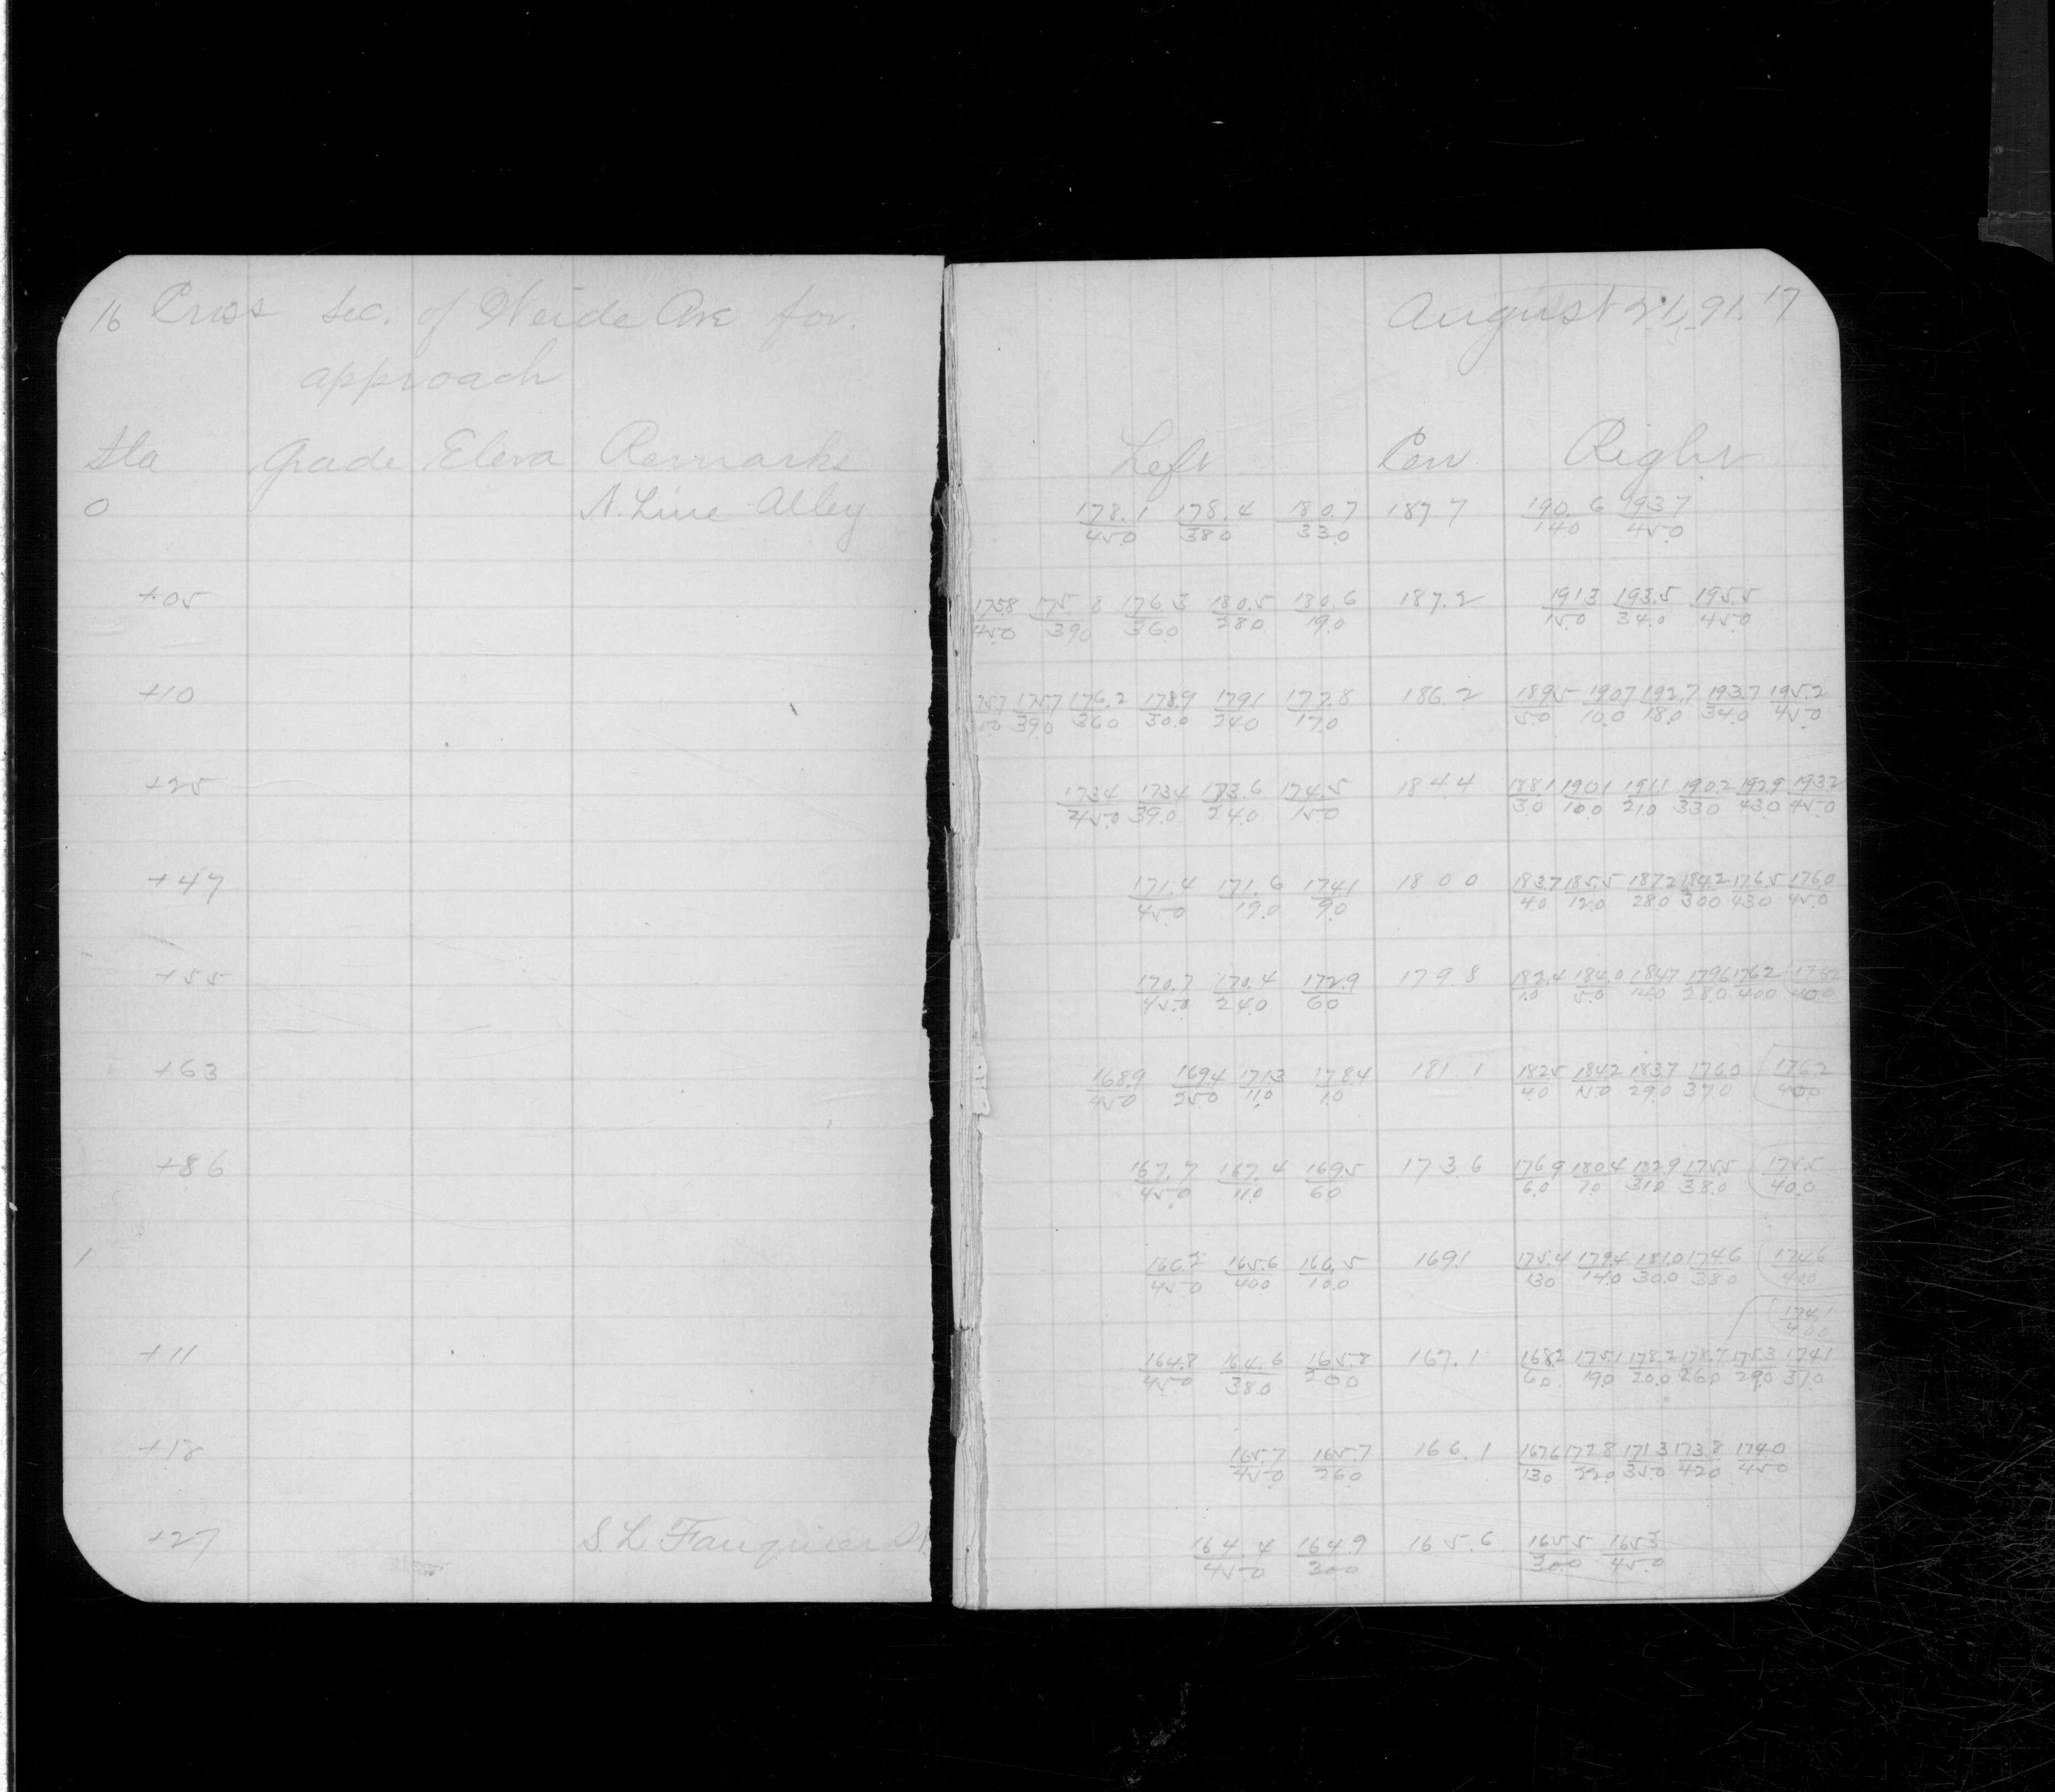 16 Cross Sec. of Weide Ave for.
approach
Sta Grade Eleva Remarks
0 N. Line Alley
+05
+10
+25
+47
+55
+63
+86
1
+11
+18
+27 S L Fauquier St.
August 21, 91. 17
Left Cen Right
178.1 178.4 180.7 187.7 190.6 193.7
45.0 38.0 33.0 14.0 45.0
175.8 175.8 176.3 180.5 180.6 187.2 191.3 193.5 195.5
45.0 39.0 36.0 28.0 19.0 15.0 34.0 45.0
175.7 176.2 178.9 179.1 177.8 186.2 189.5 190.7 192.7 193.7 195.2
39.0 36.0 30.0 24.0 17.0 5.0 10.0 18.0 34.0 45.0
173.4 173.4 173.6 174.5 184.4 188.1 190.1 191.1 190.2 192.9 193.2
45.0 39.0 24.0 15.0 3.0 10.0 21.0 33.0 43.0 45.0
171.4 171.6 174.1 180.0 183.7 185.5 187.2 184.2 176.5 176.0
45.0 19.0 9.0 4.0 12.0 28.0 30.0 43.0 45.0
170.7 170.4 172.9 179.8 182.4 184.0 184.7 179.6 176.2
45.0 24.0 6.0 1.0 5.0 14.0 28.0 40.0 40.0
168.9 169.4 171.3 178.4 181.1 182.5 184.2 183.7 176.0 176.2
45.0 25.0 11.0 1.0 4.0 15.0 29.0 37.0 40.0
167.7 167.4 169.5 173.6 176.9 180.4 182.9 175.5 175.5
45.0 11.0 6.0 6.0 7.0 31.0 38.0 40.0
166.2 165.6 166.5 169.1 175.4 179.4 181.0 174.6 174.6
45.0 40.0 10.0 13.0 14.0 30.0 38.0 40.0
174.1
40.0
164.8 164.6 165.8 167.1 168.2 175.1 178.2 178.7 175.3 174.1
45.0 38.0 20.0 6.0 19.0 20.0 26.0 29.0 37.0
165.7 165.7 166.1 167.6 172.8 171.3 173.8 174.0
45.0 26.0 13.0 22.0 35.0 42.0 45.0
164.4 164.9 165.6 165.5 165.3
45.0 30.0 30.0 45.0